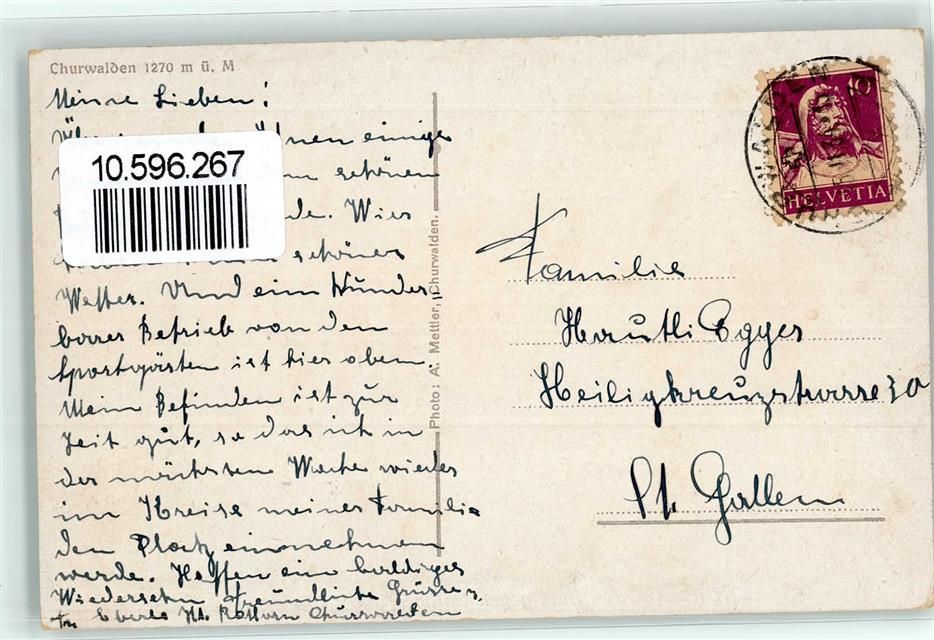 Churwalden 1270 m ü. M
Meine Lieben!
Ihnen einige
schönen
10.596.267
Wies
schönes
Wetter. Und ein Wunder-
barer Betrieb von den
Sportgästen ist hier oben.
Mein Befinden ist zur
Zeit gut, so das ich in
der nächsten Woche wieder
im Kreise meiner Famili=
den Platz einnehmen
werde. Hoffen ein baldiges
Wiedersehn Freundliche Grüsse
Eberle Churwalden
Photo: A. Mettler, Churwalden.
HELVETIA
10
CHURWALDEN
Familie
Hautli Egger
Heiligkreuzstrasse 30
St. Gallen